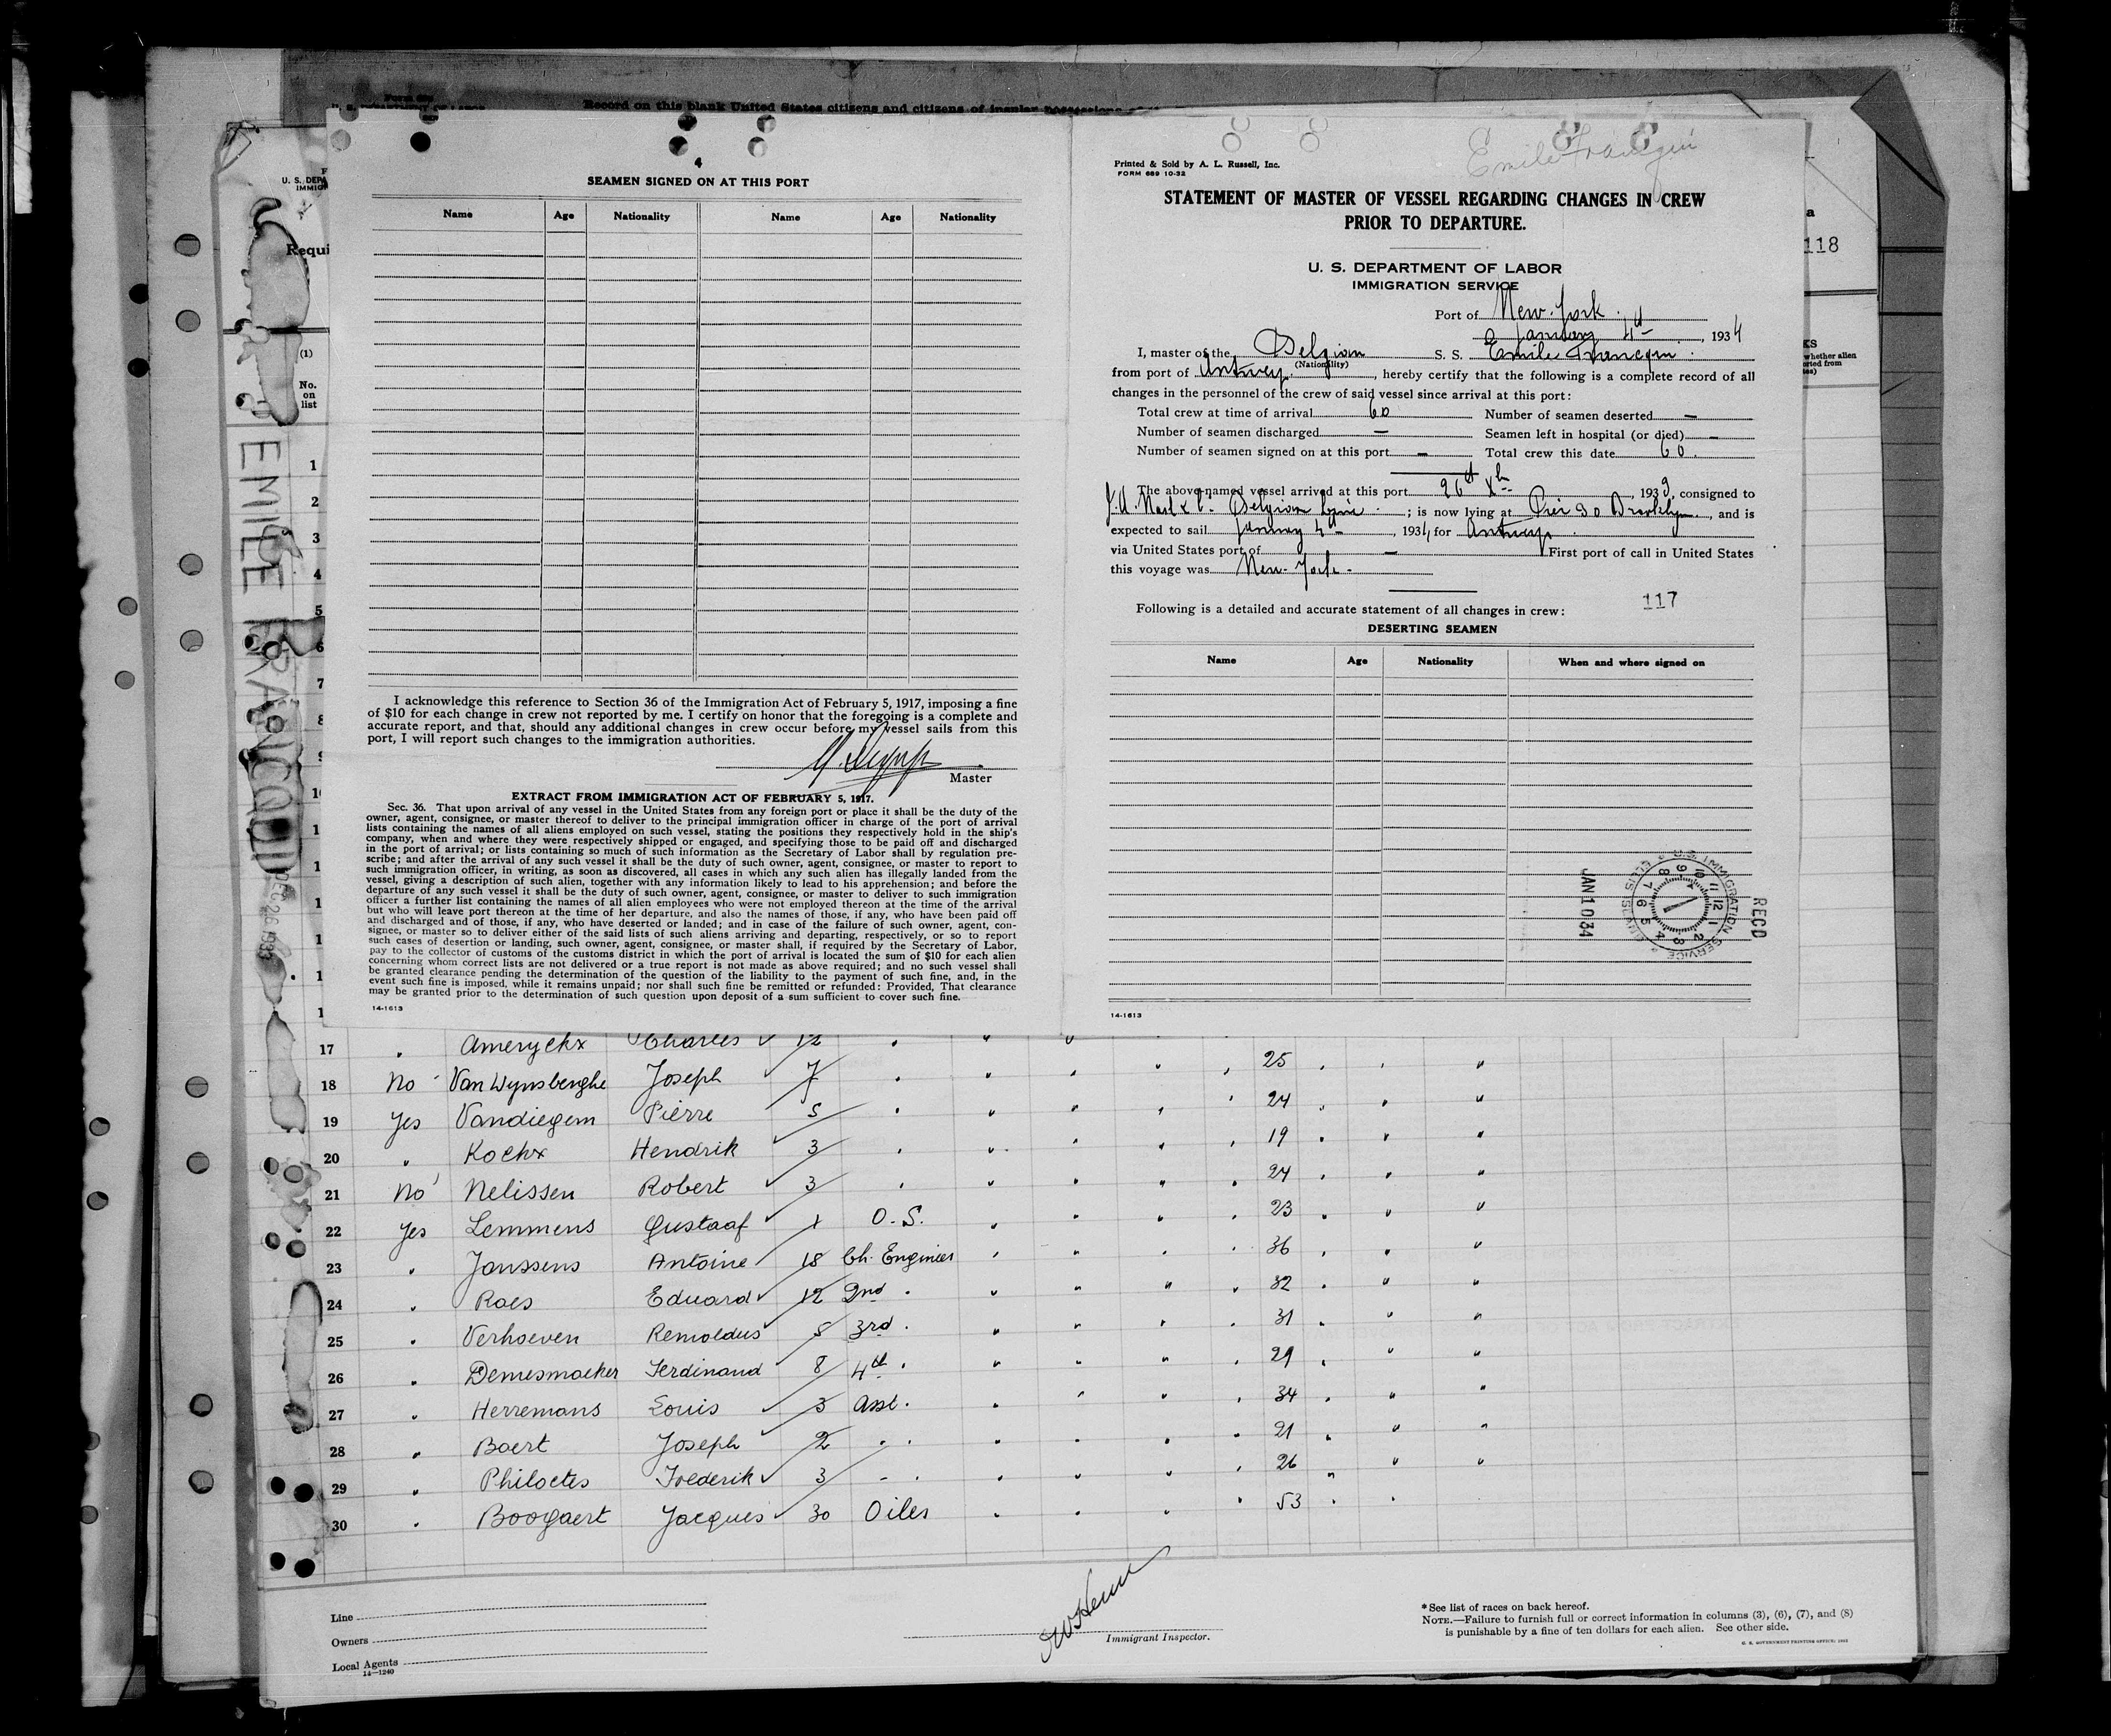 Record on this blank United States citizens and citizens of insular possessions
4
SEAMEN SIGNED ON AT THIS PORT
Name Age Nationality Name Age Nationality
I acknowledge this reference to Section 36 of the Immigration Act of February 5, 1917, imposing a fine
of $10 for each change in crew not reported by me. I certify on honor that the foregoing is a complete and
accurate report, and that, should any additional changes in crew occur before my vessel sails from this
port, I will report such changes to the immigration authorities.
Master
EXTRACT FROM IMMIGRATION ACT OF FEBRUARY 5, 1917.
Sec. 36. That upon arrival of any vessel in the United States from any foreign port or place it shall be the duty of the
owner, agent, consignee, or master thereof to deliver to the principal immigration officer in charge of the port of arrival
lists containing the names of all aliens employed on such vessel, stating the positions they respectively hold in the ship's
company, when and where they were respectively shipped or engaged, and specifying those to be paid off and discharged
in the port of arrival; or lists containing so much of such information as the Secretary of Labor shall by regulation pre-
scribe; and after the arrival of any such vessel it shall be the duty of such owner, agent, consignee, or master to report to
such immigration officer, in writing, as soon as discovered, all cases in which any such alien has illegally landed from the
vessel, giving a description of such alien, together with any information likely to lead to his apprehension; and before the
departure of any such vessel it shall be the duty of such owner, agent, consignee, or master to deliver to such immigration
officer a further list containing the names of all alien employees who were not employed thereon at the time of the arrival
but who will leave port thereon at the time of her departure, and also the names of those, if any, who have been paid off
and discharged and of those, if any, who have deserted or landed; and in case of the failure of such owner, agent, con-
signee, or master so to deliver either of the said lists of such aliens arriving and departing, respectively, or so to report
such cases of desertion or landing, such owner, agent, consignee, or master shall, if required by the Secretary of Labor,
pay to the collector of customs of the customs district in which the port of arrival is located the sum of $10 for each alien
concerning whom correct lists are not delivered or a true report is not made as above required; and no such vessel shall
be granted clearance pending the determination of the question of the liability to the payment of such fine, and, in the
event such fine is imposed, while it remains unpaid; nor shall such fine be remitted or refunded: Provided, That clearance
may be granted prior to the determination of such question upon deposit of a sum sufficient to cover such fine.
14-1613
Emile Francqui
Printed & Sold by A. L. Russell, Inc.
FORM 689 10-32
STATEMENT OF MASTER OF VESSEL REGARDING CHANGES IN CREW
PRIOR TO DEPARTURE.
U. S. DEPARTMENT OF LABOR
IMMIGRATION SERVICE
Port of New-York.
January 4th, 1934
I, master of the Belgian S. S. Emile Francqui.
(Nationality)
from port of Antwerp, hereby certify that the following is a complete record of all
changes in the personnel of the crew of said vessel since arrival at this port:
Total crew at time of arrival 60 Number of seamen deserted —
Number of seamen discharged — Seamen left in hospital (or died) —
Number of seamen signed on at this port — Total crew this date 60.
The above-named vessel arrived at this port 26th Xb, 1933, consigned to
Belgian Line; is now lying at Pier 30 Brooklyn, and is
expected to sail January 4th, 1934, for Antwerp.
via United States port of — First port of call in United States
this voyage was New-York.
117
Following is a detailed and accurate statement of all changes in crew:
DESERTING SEAMEN
Name Age Nationality When and where signed on
RECD
U.S. IMMIGRATION SERVICE ELLIS ISLAND
JAN 10 34
14-1613
118
U. S. DEPA
IMMIG
Requi
(1)
No.
on
list
EMILE FRANCQUI DEC 26 1933
1
2
3
4
5
6
7
8
17 " Ameryckx Charles 12
18 No Van Wynsberghe Joseph 7 " 25
19 Yes Vandiegem Pierre 5 " 24
20 " Kockx Hendrik 3 " 19
21 No Nelissen Robert 3 " 24
22 Yes Lemmens Gustaaf 1 O.S. " 23
23 " Janssens Antoine 18 Ch. Engineer " 36
24 " Raes Eduard 12 2nd " 32
25 " Verhoeven Remoldus 5 3rd " 31
26 " Demesmaeker Ferdinand 8 4th " 29
27 " Herremans Louis 3 Asst. " 34
28 " Baert Joseph 2 " 21
29 " Philoctes Frederik 3 " 26
30 " Boogaert Jacques 30 Oiler " 53
Line
Owners
Local Agents
14—1240
Immigrant Inspector.
* See list of races on back hereof.
NOTE.—Failure to furnish full or correct information in columns (3), (6), (7), and (8)
is punishable by a fine of ten dollars for each alien. See other side.
U. S. GOVERNMENT PRINTING OFFICE: 1932